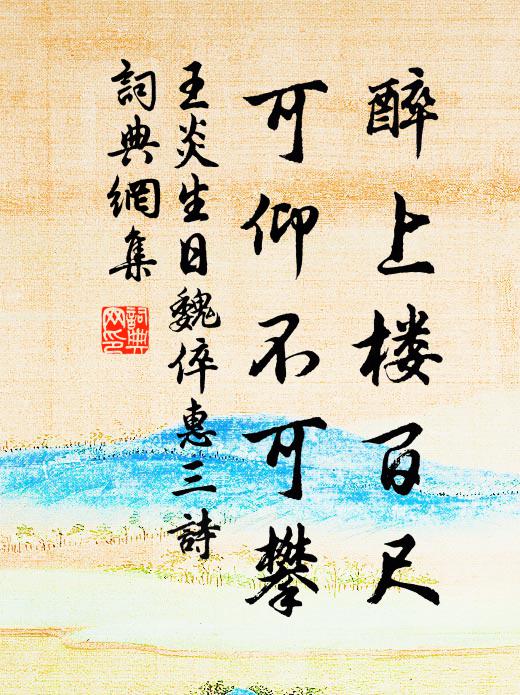 醉上楼百尺
可仰不可攀
王炎生日魏倅惠三詩
詞典網集
詞典
网印